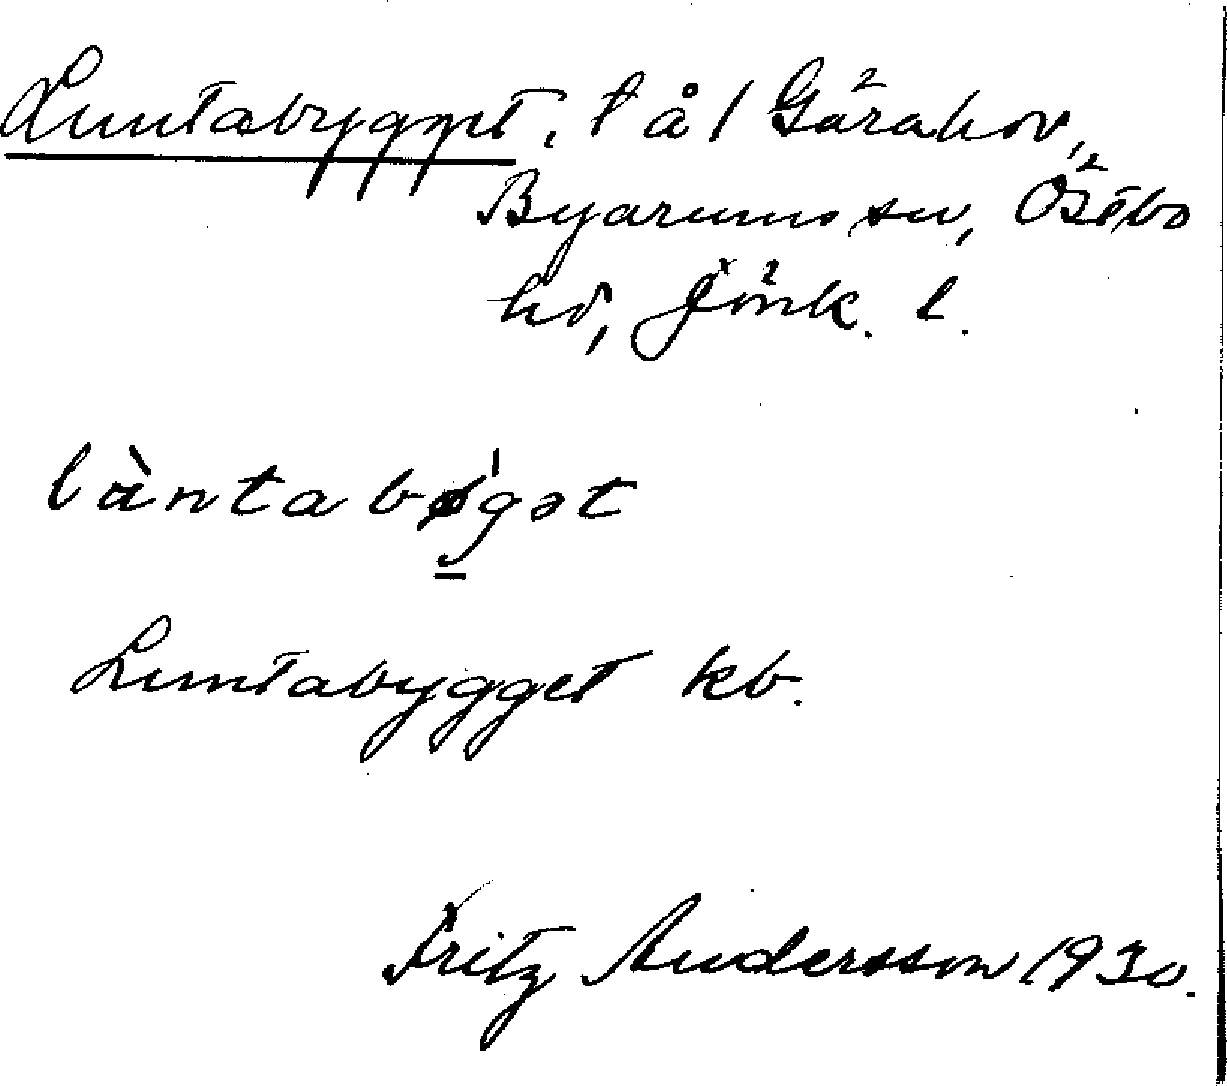 Luntabygget, t å 1 Gärahov,
Byarums sn, Östbo
hd, Jönk. l.
làntabøgət
Luntabygget kb.
Fritz Andersson 1930.